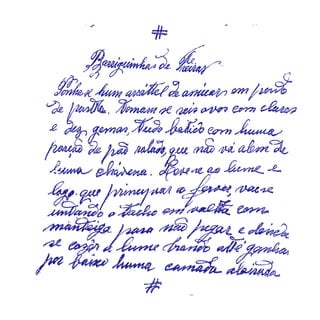 #
Barriguinhas de Freiras
Põnhe-se hum arrattel de assucar em ponto
de pasta. Tomam-se seis ovos com claras
e dez gemas, tudo batido com huma
porção de pão ralado, que não vá alem de
huma chávena. Leve-se ao lume e
logo que principiar a ferver, vae-se
untando o tacho em volta com
manteiga para não pegar e deixa-
se cozer a lume brando até ganhar
por baixo huma camada aloirada
#